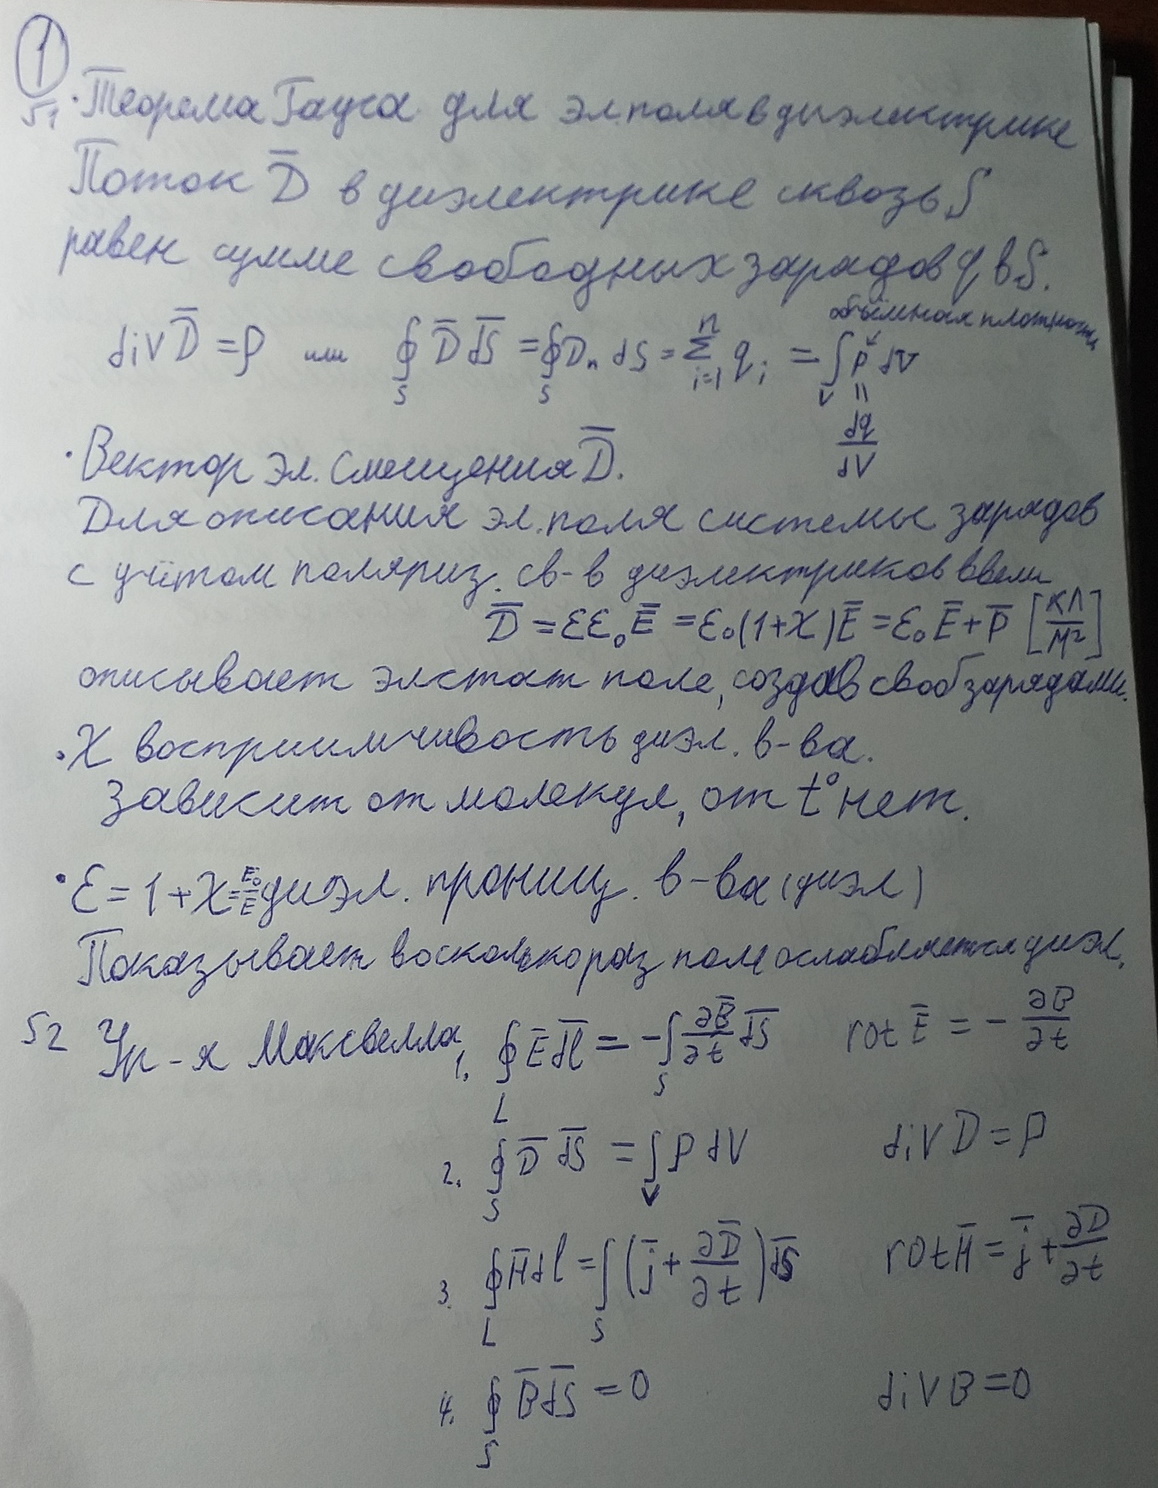 1
51 · Теорема Гауса для эл.поля в диэлектрике
Поток D̅ в диэлектрике сквозь S
равен сумме свободных зарядов q в S.
объёмная плотность
div D̅ = ρ или ∮_S D̅ dS̅ = ∮_S Dₙ dS = Σ_{i=1}^{n} q_i = ∫_V ρ dV
॥
dq/dV
· Вектор эл. смещения D̅.
Для описания эл. поля системы зарядов
с учётом поляриз. св-в диэлектриков ввели
D̅ = εε₀E̅ = ε₀(1+χ)E̅ = ε₀E̅ + P̅ [Кл/м²]
описывает элстат поле, создав своб зарядами.
· χ восприимчивость диэл. в-ва.
Зависит от молекул, от t° нет.
· ε = 1 + χ = E₀/E диэл. прониц. в-ва (диэл)
Показывает во сколько раз поле ослабляется диэл.
52 Ур-я Максвелла 1. ∮_L E̅ dl̅ = -∫_S ∂B̅/∂t dS̅ rot E̅ = - ∂B/∂t
2. ∮_S D̅ dS̅ = ∫_V ρ dV div D = ρ
3. ∮_L H̅ dl = ∫_S (j̅ + ∂D̅/∂t) dS̅ rot H̅ = j̅ + ∂D̅/∂t
4. ∮_S B̅ dS̅ = 0 div B = 0